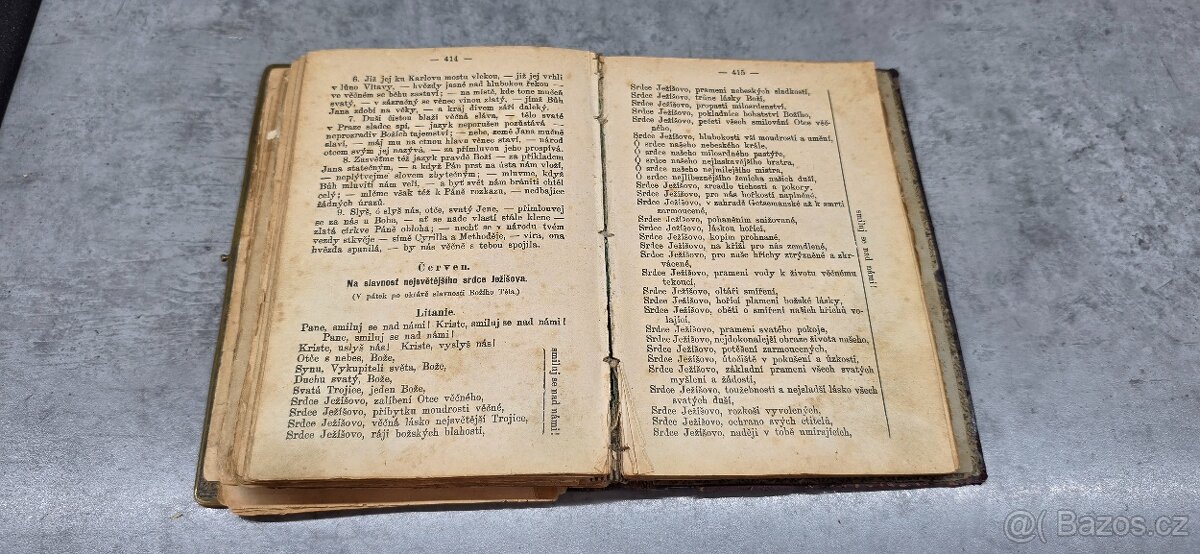 — 414 —
6. Již jej ku Karlovu mostu vlekou, — již jej vrhli
v lůno Vltavy, — hvězdy jasné nad hlubokou řekou —
ve věčném se běhu zastaví; — na místě, kde tone mučeník
svatý, — v zázračný se věnec vinou zlatý, — jímž Bůh
Jana zdobí na věky, — a kraj divem září daleký.
7. Duši čistou blaží věčná sláva, — tělo svaté
v Praze sladce spí, — jazyk neporušen pozůstává —
neprozradiv Božích tajemství; — nebe, země Jana mučně
slaví, — máj mu na ctnou hlavu věnec staví, — národ
otcem svým jej nazývá, — za přímluvou jeho prospívá.
8. Zasvěťme též jazyk pravdě Boží — za příkladem
Jana statečným, — a když Pán prst na ústa nám vloží,
— neplýtvejme slovem zbytečným; — mluvme, když
Bůh mluviti nám velí, — a byť svět nám brániti chtěl
celý; — mlčme však též k Páně rozkazu, — nedbajíce
žádných úrazů.
9. Slyš, ó slyš nás, otče, svatý Jene, — přimlouvej
se za nás u Boha, — ať se nade vlastí stále klene —
zlatá církve Páně obloha; — nechť se v národu tvém
vezdy stkvěje — símě Cyrilla a Methoděje, — víra, ona
hvězda spanilá, — by nás věčně s tebou spojila.
Červen.
Na slavnost nejsvětějšího srdce Ježíšova.
(V pátek po oktávě slavnosti Božího Těla.)
Litanie.
Pane, smiluj se nad námi! Kriste, smiluj se nad námi!
Pane, smiluj se nad námi!
Kriste, uslyš nás! Kriste, vyslyš nás!
Otče s nebes, Bože,
Synu, Vykupiteli světa, Bože,
Duchu svatý, Bože,
Svatá Trojice, jeden Bože,
Srdce Ježíšovo, zalíbení Otce věčného,
Srdce Ježíšovo, příbytku moudrosti věčné,
Srdce Ježíšovo, věčná lásko nejsvětější Trojice,
Srdce Ježíšovo, ráji božských blahostí,
smiluj se nad námi!
— 415 —
Srdce Ježíšovo, prameni nebeských sladkostí,
Srdce Ježíšovo, trůne lásky Boží,
Srdce Ježíšovo, propasti milosrdenství,
Srdce Ježíšovo, pokladnice bohatství Božího,
Srdce Ježíšovo, pečeti všech smilování Otce věč-
ného,
Srdce Ježíšovo, hlubokosti vší moudrosti a umění,
Ó srdce našeho nebeského krále,
Ó srdce našeho milosrdného pastýře,
Ó srdce našeho nejlaskavějšího bratra,
Ó srdce našeho nejmilejšího mistra,
Ó srdce nejlíbeznějšího ženicha našich duší,
Srdce Ježíšovo, zrcadlo tichosti a pokory,
Srdce Ježíšovo, pro nás hořkostí naplněné,
Srdce Ježíšovo, v zahradě Getsemanské až k smrti
zarmoucené,
Srdce Ježíšovo, pohaněním snižované,
Srdce Ježíšovo, láskou hořící,
Srdce Ježíšovo, kopím prohnané,
Srdce Ježíšovo, na kříži pro nás zemdlené,
Srdce Ježíšovo, pro naše hříchy ztrýzněné a zkr-
vácené,
Srdce Ježíšovo, prameni vody k životu věčnému
tekoucí,
Srdce Ježíšovo, oltáři smíření,
Srdce Ježíšovo, hořící plameni božské lásky,
Srdce Ježíšovo, oběti o smíření našich hříchů vo-
lající,
Srdce Ježíšovo, prameni svatého pokoje,
Srdce Ježíšovo, nejdokonalejší obraze života našeho,
Srdce Ježíšovo, potěšení zarmoucených,
Srdce Ježíšovo, útočiště v pokušení a úzkosti,
Srdce Ježíšovo, základní prameni všech svatých
myšlení a žádostí,
Srdce Ježíšovo, toužebnosti a nejsladší lásko všech
svatých duší,
Srdce Ježíšovo, rozkoši vyvolených,
Srdce Ježíšovo, ochrano svých ctitelů,
Srdce Ježíšovo, naději v tobě umírajících,
smiluj se nad námi!
@( Bazos.cz